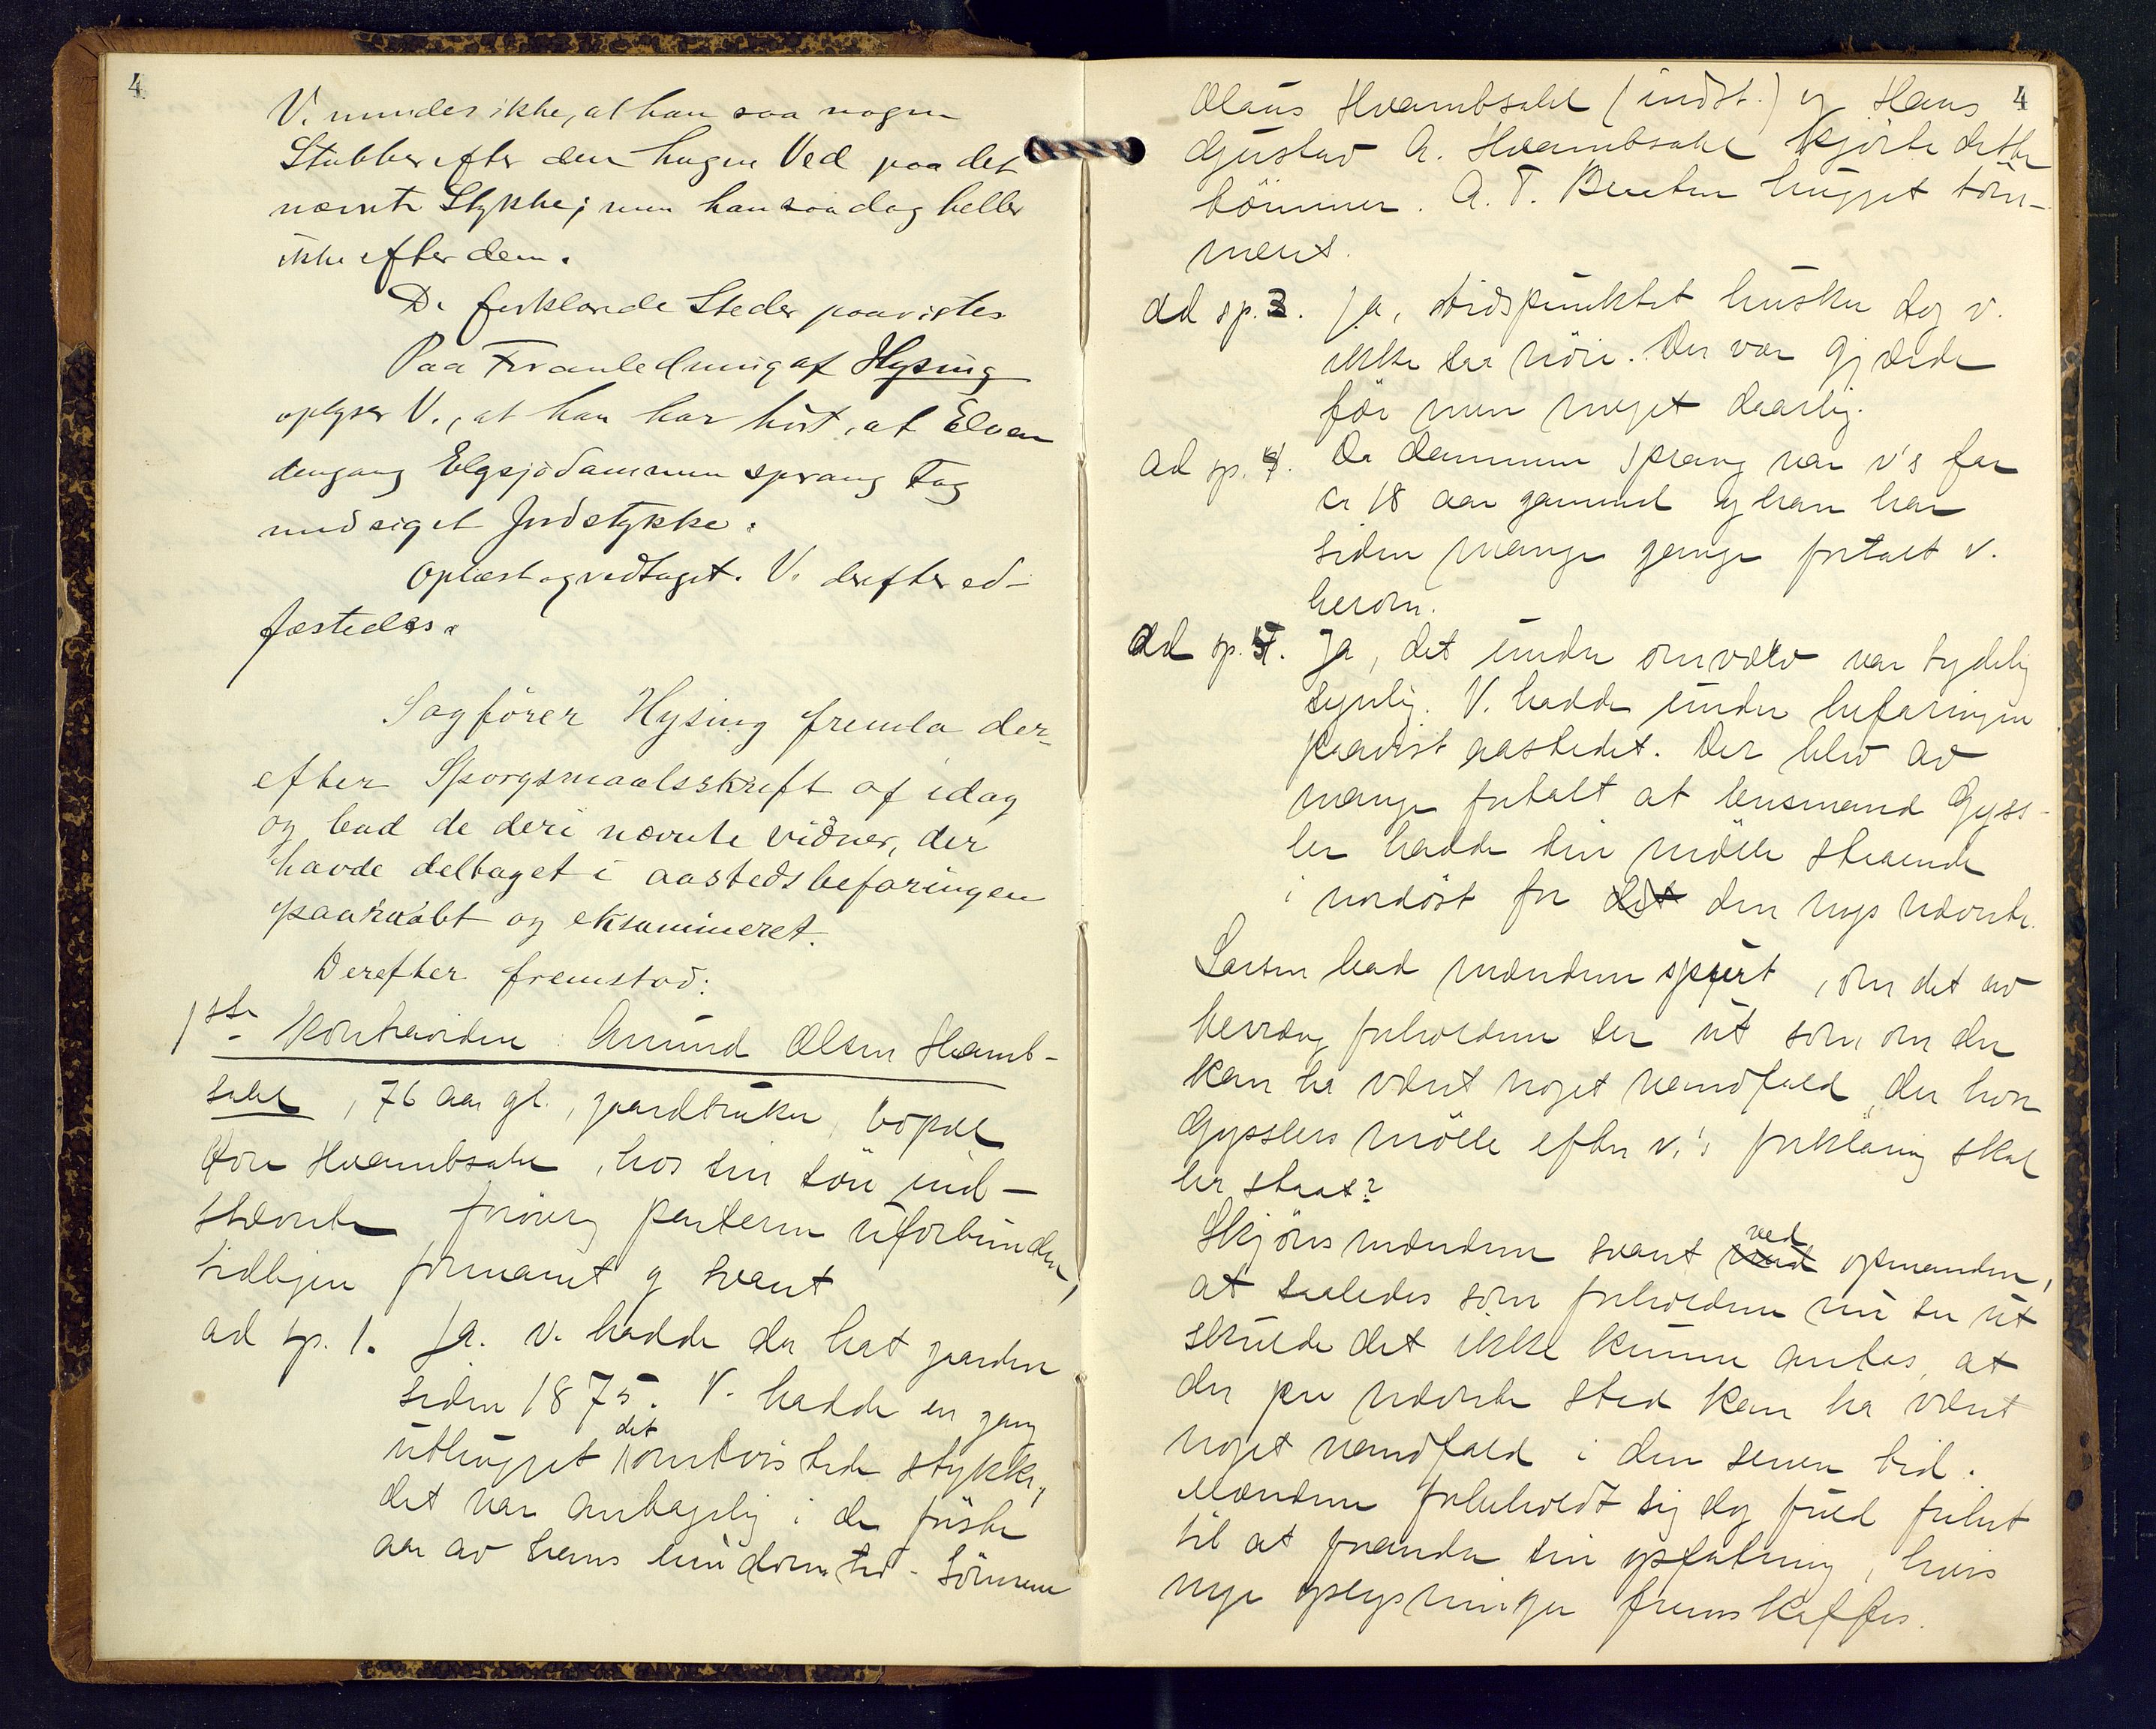 4
V. mindes ikke, at han saa nogen
Stubber efter den hugne Ved paa det
nævnte Stykke; men han saa dog heller
ikke efter dem.
De forklarede Steder paavistes
Paa Foranledning af Hysing
oplyser V., at han har hørt, at Elven
dengang Elgsjødammen sprang tog
med sig et Jordstykke.
Oplæst og vedtaget. V. derefter ed-
fæstedes.
Sagfører Hysing fremla der-
efter Spørgsmaalsskrift af idag
og bad de deri nævnte vidner, der
havde deltaget i aastedsbefaringen
paaraabt og eksamineret.
Derefter fremstod:
1ste Kontravidne: Amund Olsen Hvamb-
sahl, 76 aar gl., gaardbruker, bopæl
Hvambsahl, hos sin søn ind-
stævnte forøvrig parterne uforbunden,
lidligen formanet og svart
ad sp. 1. Ja. V. hadde da hat gaarden
siden 1875. V. hadde en gang
uthugget det omtvistede stykke,
det var antagelig i de første
aar av hans eiendomstid. Tømmer
4
Olaus Hvambsahl (indst.) og Hans
Gustav A. Hvambsahl kjørte dette
tømmer. A. T. Braaten hugget tøm-
meret.
ad sp. 3. Ja, tidspunktet husker dog v.
ikke saa nøie. Der var gjærde
før men meget daarlig.
ad sp. 4. Da dammen sprang var v's far
ca 18 aar gammel og han har
siden mange gange fortalt v.
herom.
ad sp. 5. Ja, det søndre omvælv var tydelig
synlig. V. hadde under befaringen
paavist aastedet. Der blev av
mange fortalt at lensmand Gyss-
ler hadde sin mølle staaende
i nordøst for det den nys nævnte.
Larsen bad mændene spurt, om det av
hensyn forholdene ser ut som om der
kan ha været noget vandfald der hvor
Gysslers mølle efter v.'s forklaring skal
ha staat?
Skjønsmændene svart ved opmanden,
at saaledes som forholdene nu ser ut
skulde det ikke kunne antas, at
der paa nævnte sted kan ha været
noget vandfald i den senere tid.
Mændene forbeholdt sig dog fuld frihet
til at forandre sin opfatning, hvis
nye oplysninger fremskaffes.